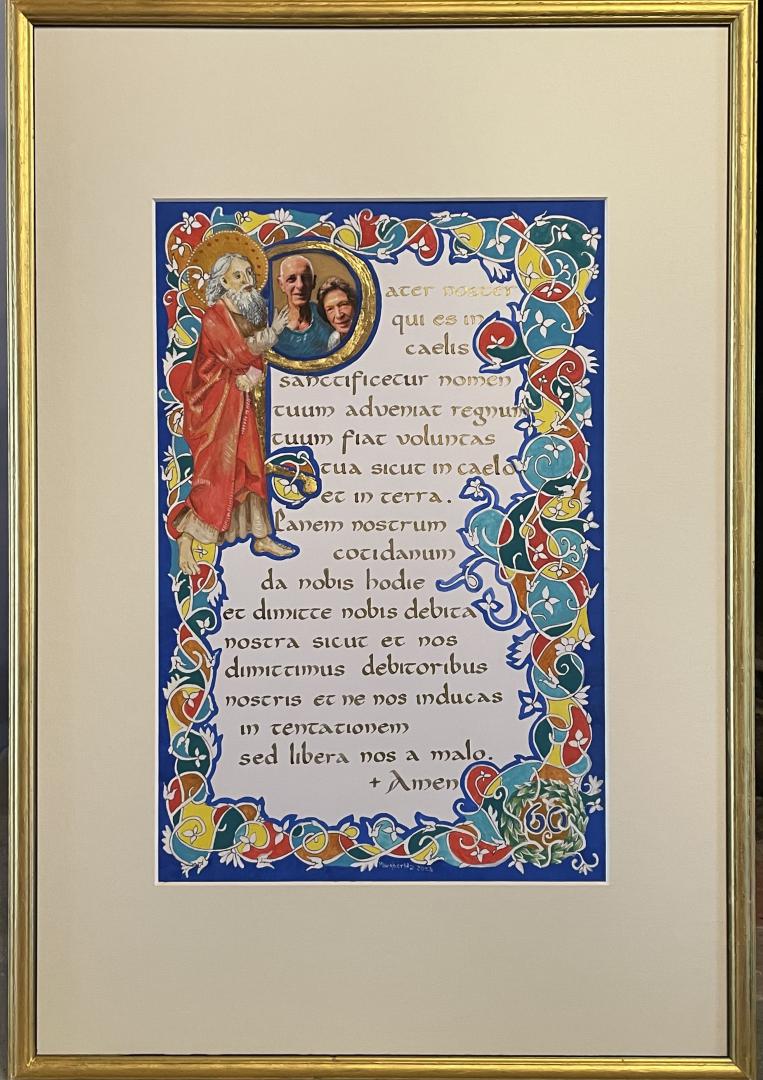 Pater noster
qui es in
caelis
sanctificetur nomen
tuum adveniat regnum
tuum fiat voluntas
tua sicut in caelo
et in terra.
Panem nostrum
cotidanum
da nobis hodie
et dimitte nobis debita
nostra sicut et nos
dimittimus debitoribus
nostris et ne nos inducas
in tentationem
sed libera nos a malo.
+ Amen
60